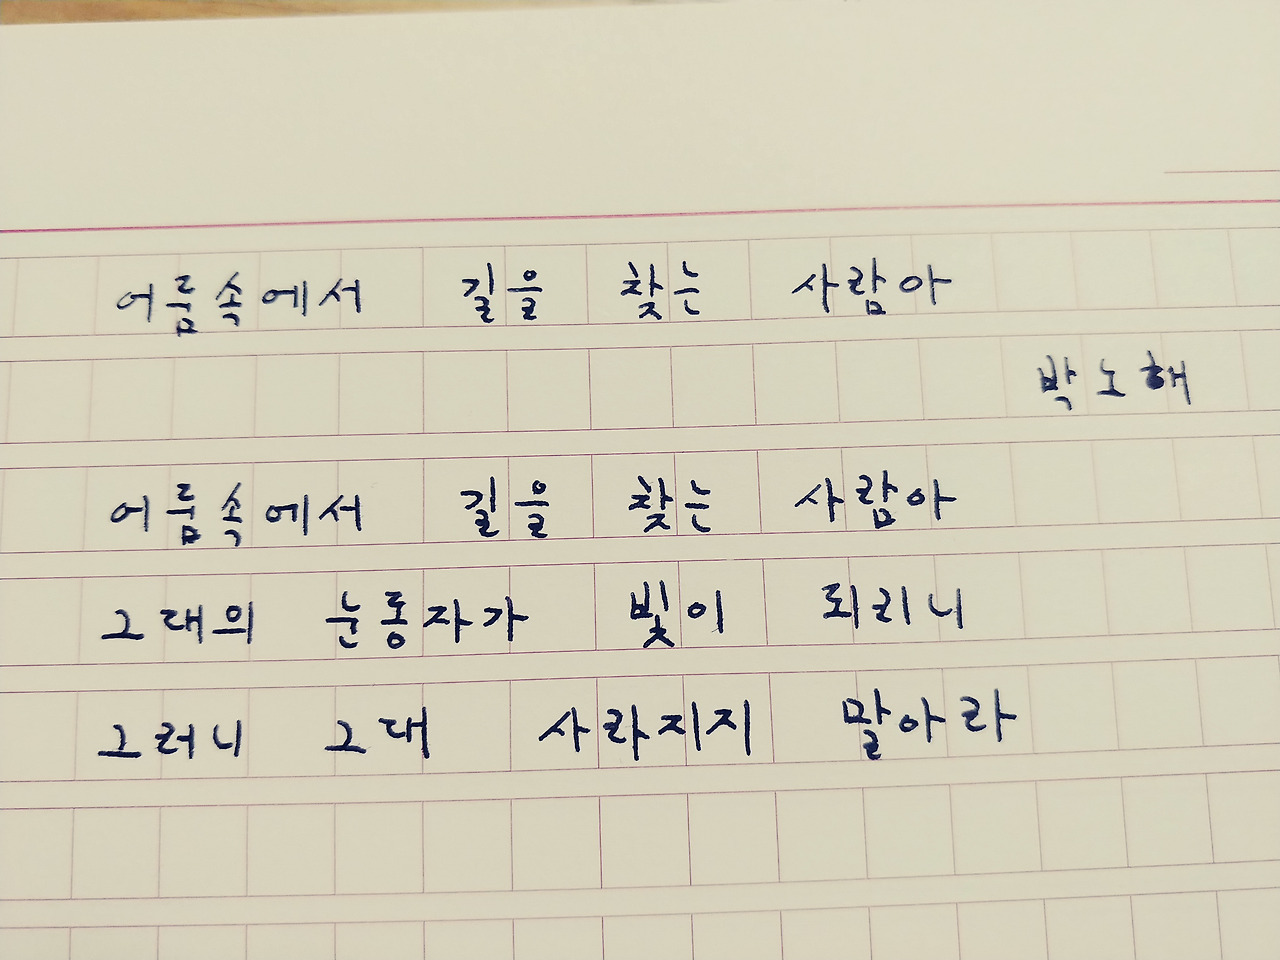 어름속에서 길을 찾는 사람아
박노해
어름속에서 길을 찾는 사람아
그대의 눈동자가 빛이 되리니
그러니 그대 사라지지 말아라